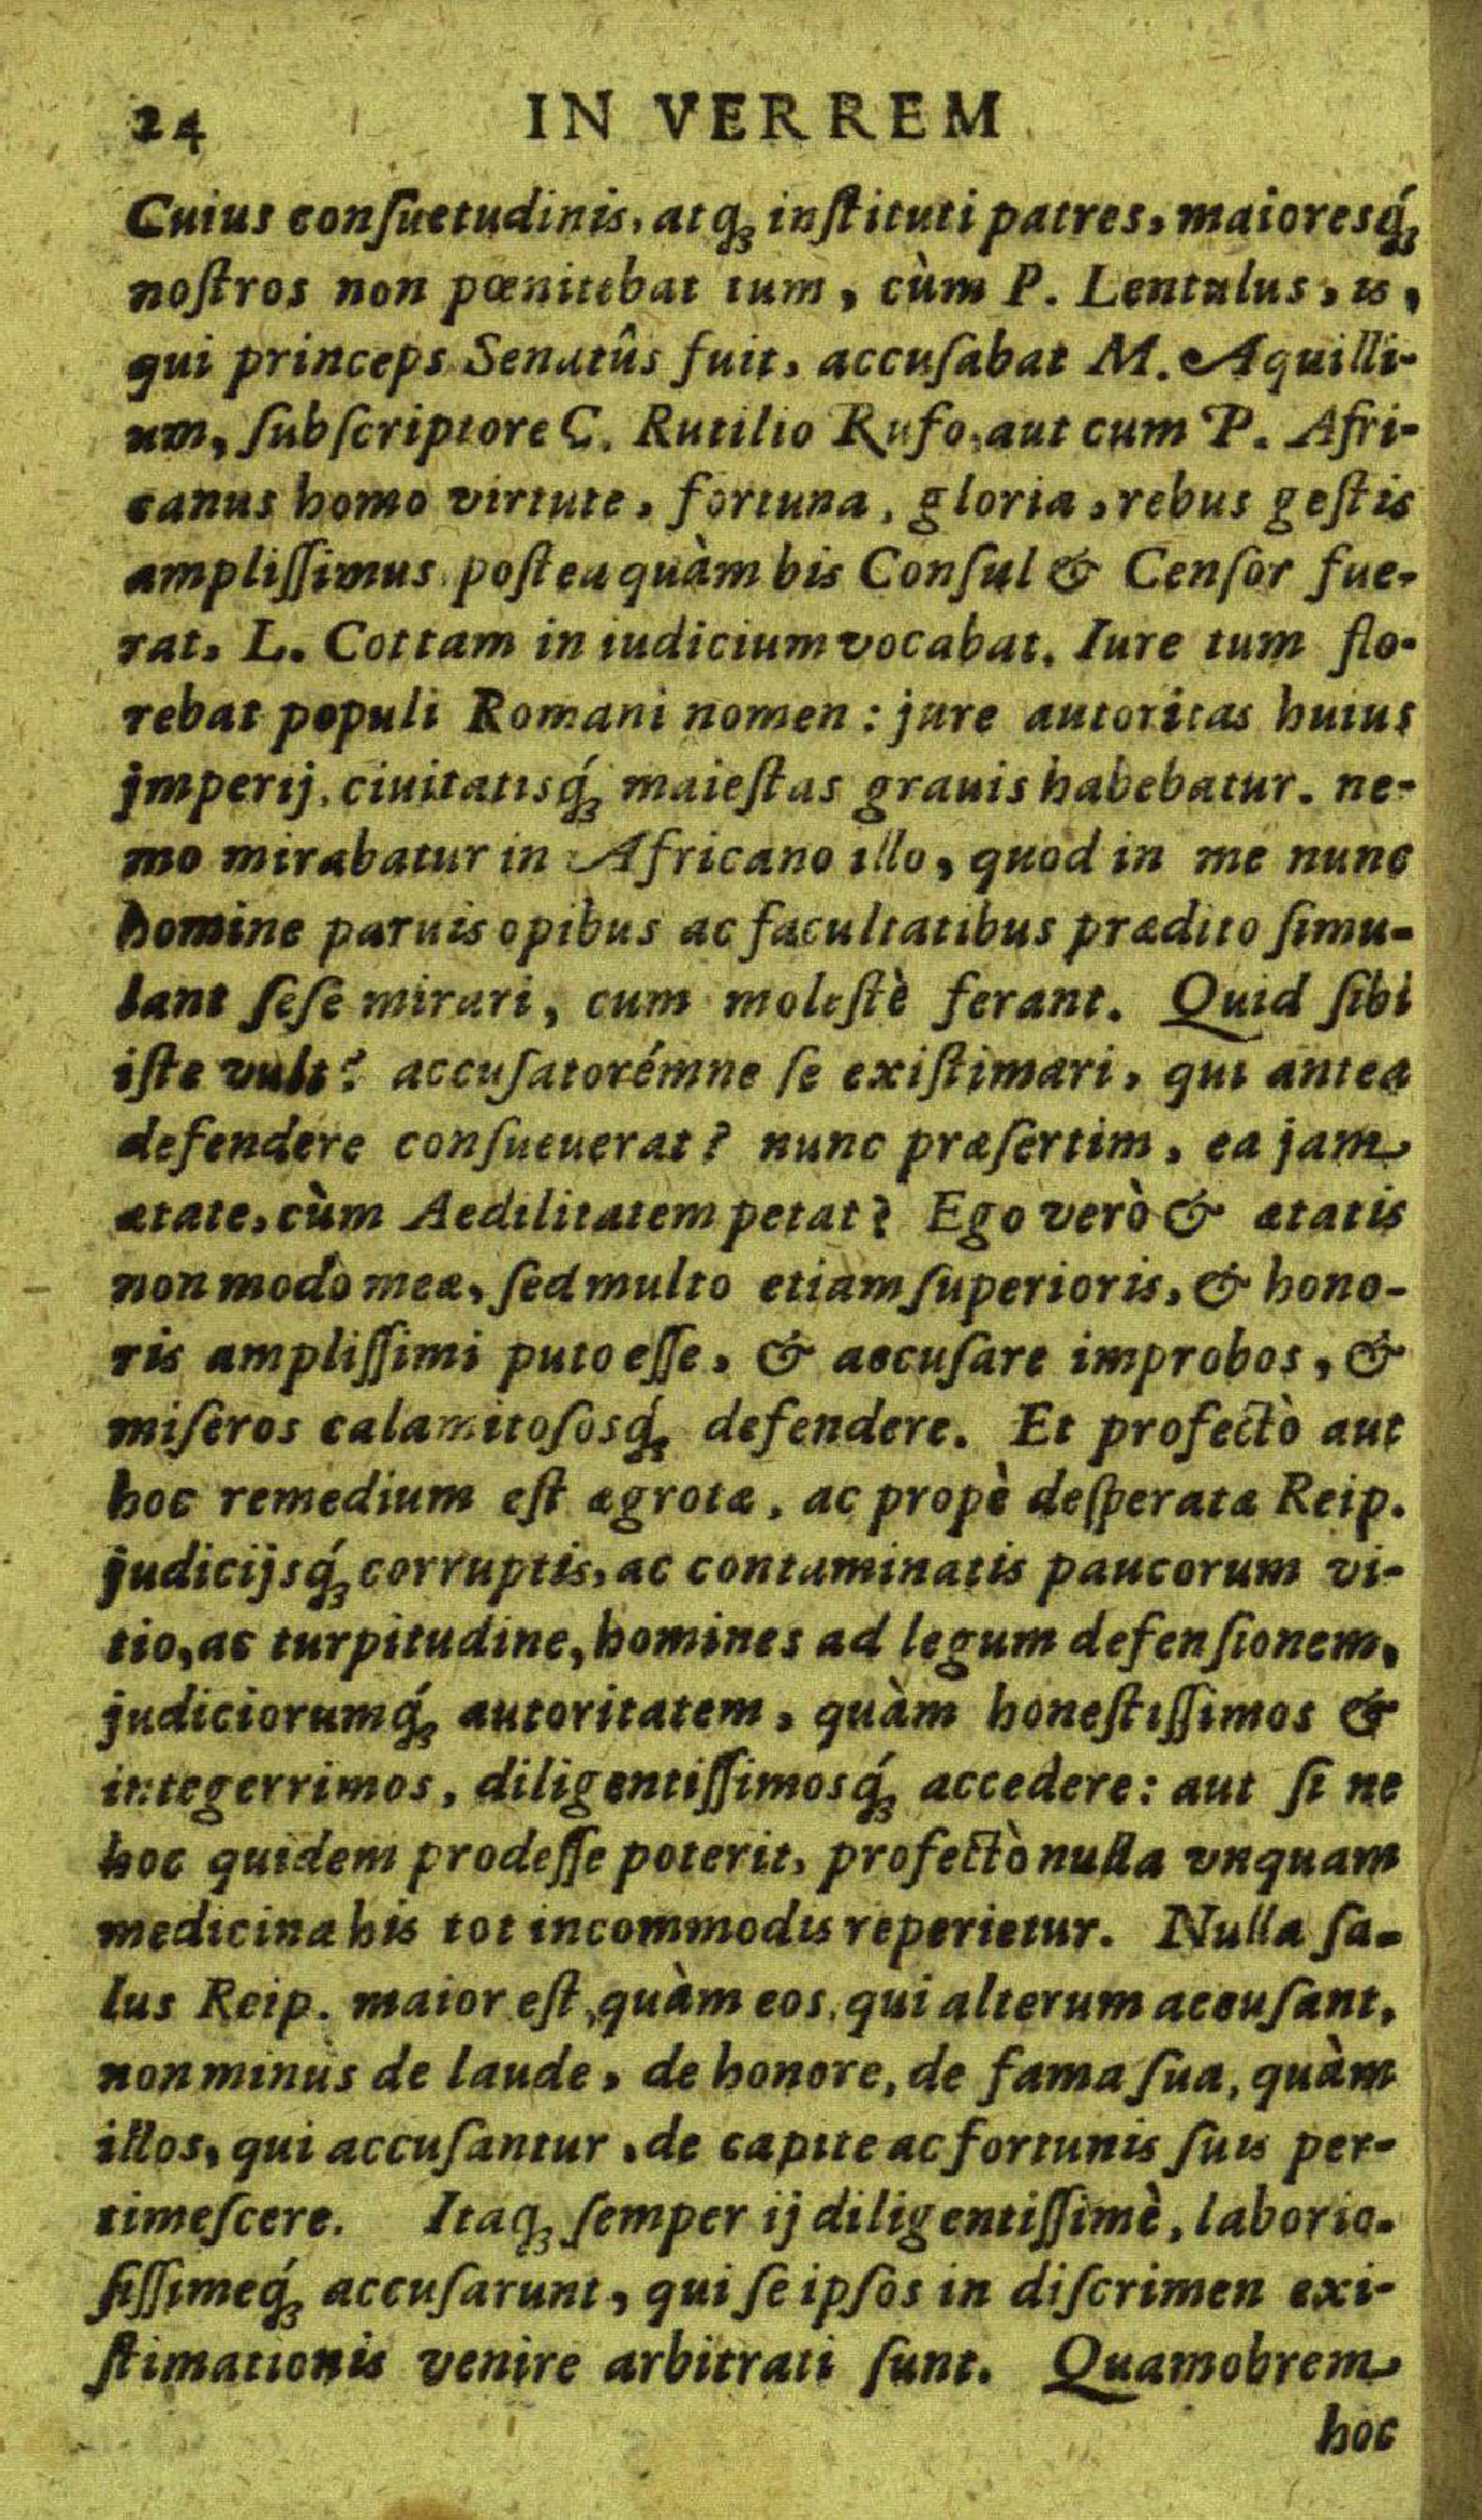 24 IN VERREM
Cuius conſuetudinis, atq́ꝫ inſtituti patres, maioresq́ꝫ
noſtros non pœnitebat tum, cùm P. Lentulus, is,
qui princeps Senatûs fuit, accuſabat M. Aquilli-
um, ſubſcriptore C. Rutilio Rufo, aut cum P. Afri-
canus homo virtute, fortuna, gloria, rebus geſtis
ampliſſimus, poſteaquàm bis Conſul & Cenſor fue-
rat, L. Cottam in iudicium vocabat. Iure tum flo-
rebat populi Romani nomen: jure autoritas huius
jmperij, ciuitatisq́ꝫ maieſtas grauis habebatur. ne-
mo mirabatur in Africano illo, quod in me nunc
homine paruis opibus ac facultatibus prædito ſimu-
lant ſeſe mirari, cum moleſtè ferant. Quid ſibi
iſte vult? accuſatorémne ſe exiſtimari, qui antea
defendere conſueuerat? nunc præſertim, ea jam
ætate, cùm Aedilitatem petat? Ego verò & ætatis
non modo meæ, ſed multo etiam ſuperioris, & hono-
ris ampliſſimi puto eſſe, & accuſare improbos, &
miſeros calamitoſosq́ꝫ defendere. Et profectò aut
hoc remedium eſt ægrotæ, ac propè deſperatæ Reip.
judicijsq́ꝫ corruptis, ac contaminatis paucorum vi-
tio, ac turpitudine, homines ad legum defenſionem,
judiciorumq́ꝫ autoritatem, quàm honeſtiſſimos &
integerrimos, diligentiſſimosq́ꝫ accedere: aut ſi ne
hoc quidem prodeſſe poterit, profectò nulla vnquam
medicina his tot incommodis reperietur. Nulla ſa-
lus Reip. maior eſt, quàm eos, qui alterum accuſant,
non minùs de laude, de honore, de fama ſua, quàm
illos, qui accuſantur, de capite ac fortunis ſuis per-
timeſcere. Itaqꝫ ſemper ij diligentiſſimè, laborio-
ſiſſimeq́ꝫ accuſarunt, qui ſe ipſos in diſcrimen exi-
ſtimationis venire arbitrati ſunt. Quamobrem
hoc